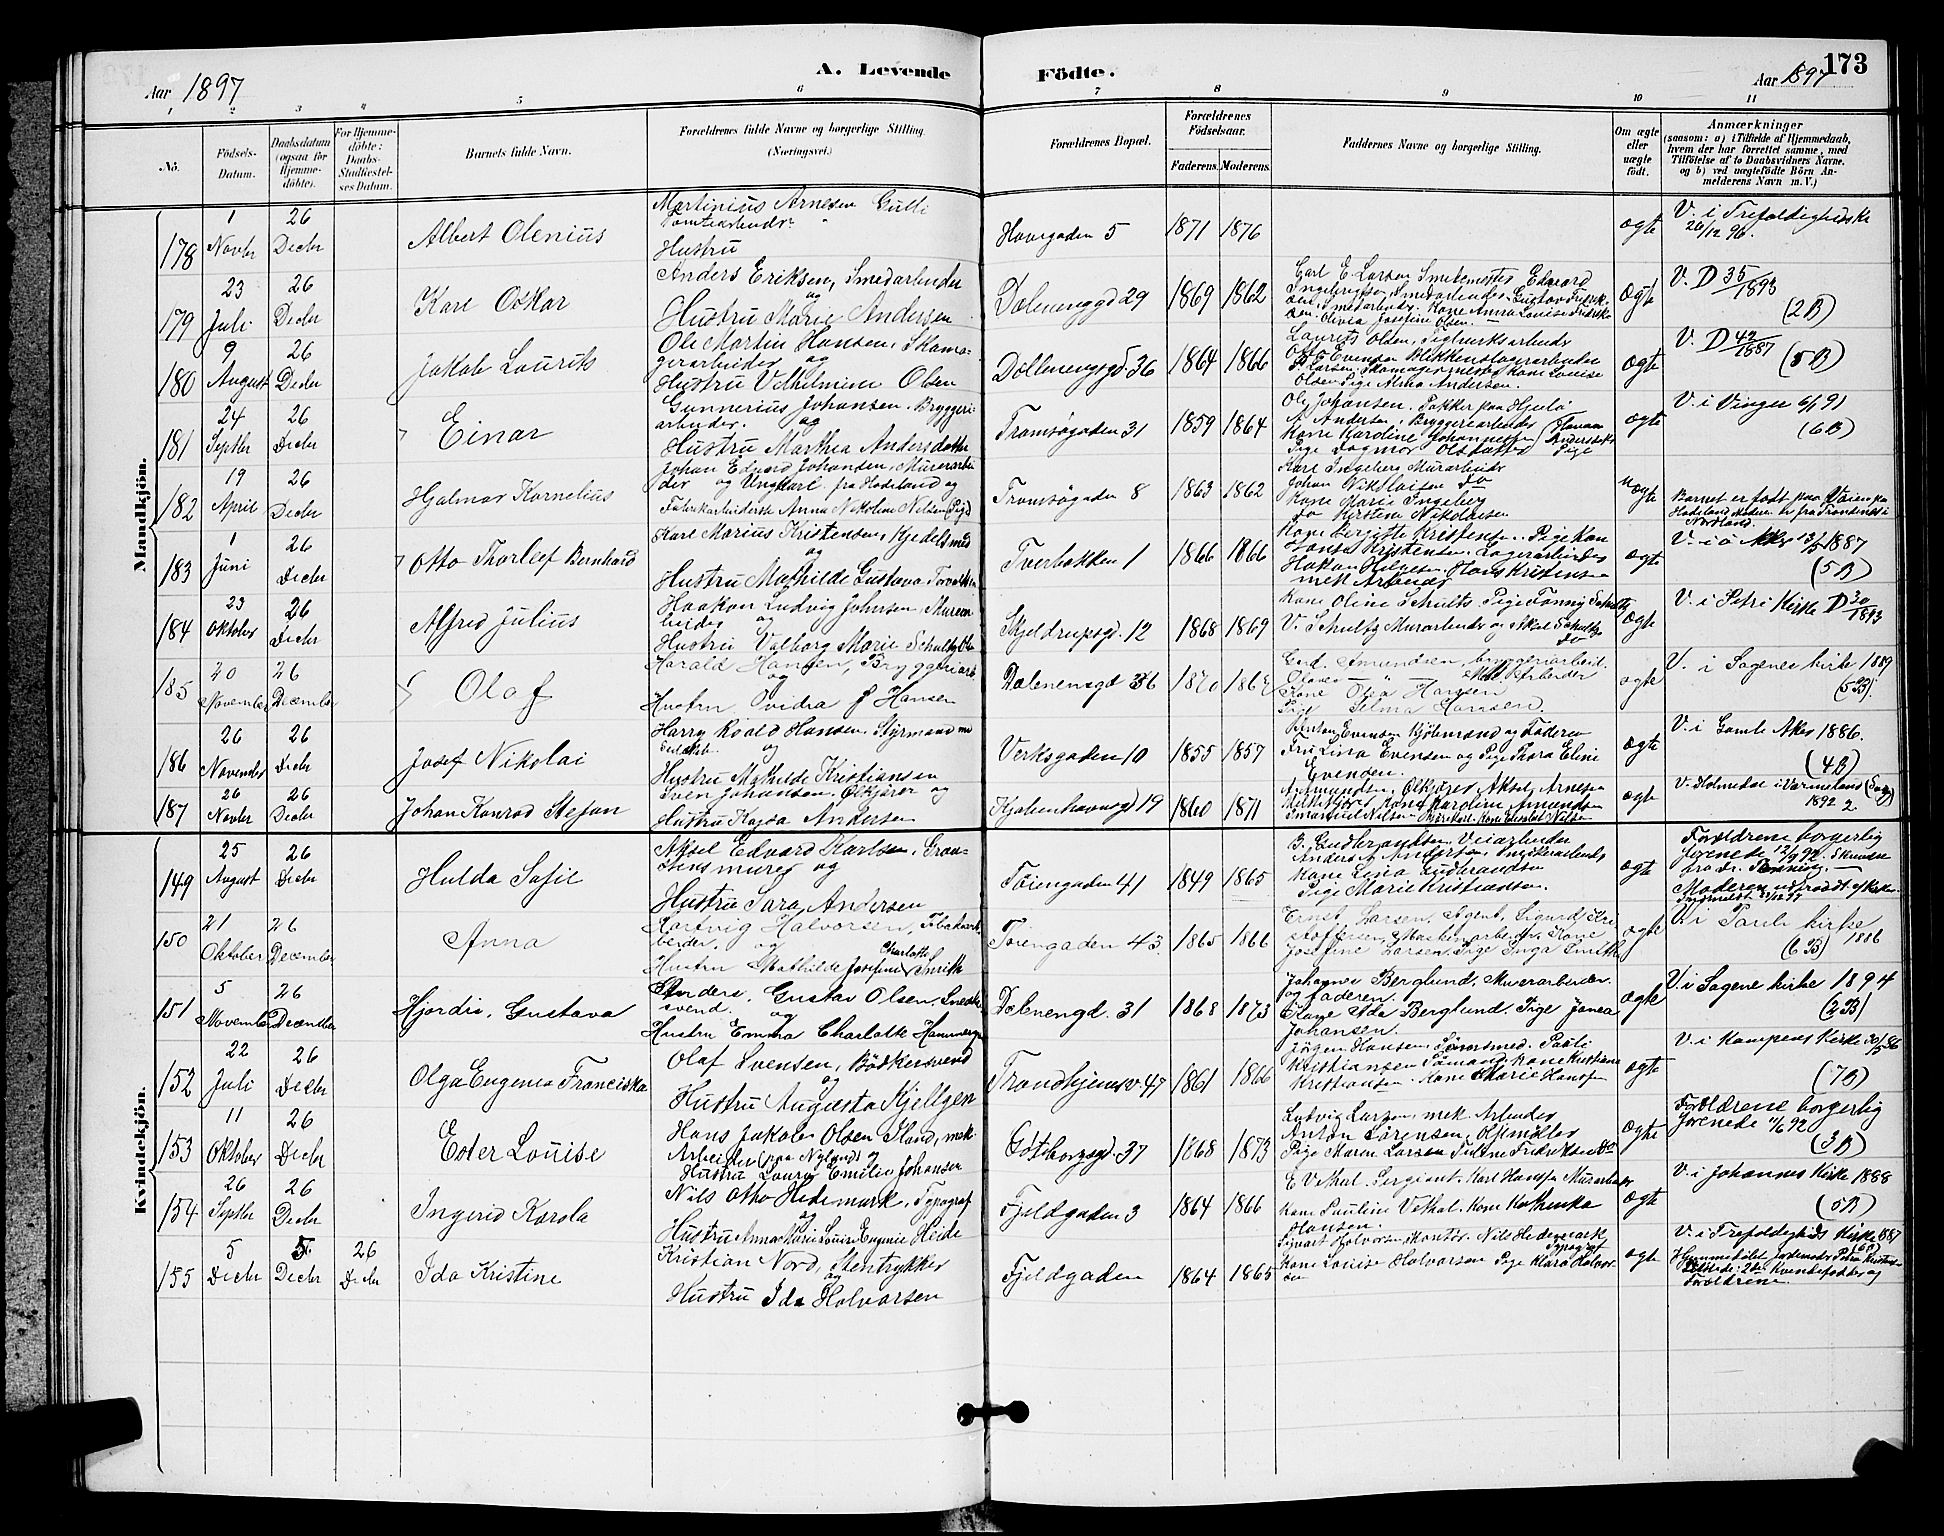 Aar 1897
A. Levende Fødte.
Aar 1897
173
1 2 3 4 5 6 7 8 9 10 11
No.
Fødsels-Datum.
Daabsdatum (ogsaa for Hjemme-døbte).
For Hjemme-døbte: Daabs-Stadfæstel-ses Datum.
Barnets fulde Navn.
Forældrenes fulde Navne og borgerlige Stilling. (Næringsvei.)
Forældrenes Bopæl.
Forældrenes Fødselsaar.
Faderens. Moderens.
Faddernes Navne og borgerlige Stilling.
Om ægte eller uægte født.
Anmærkninger (saasom: a) i Tilfælde af Hjemmedaab, hvem der har forrettet samme, med Tilføielse af to Daabsvidners Navne, og b) ved uægtefødte Børn An-melderens Navn m. V.)
Mandkjøn.
178 1 Novbr 26 Decbr Albert Olenius
Martinius Arnesen Gulli
Tomtearbeider
Hustru
Havegaden 5 1871 1876 ægte
V. i Trefoldighedsk
26/12 96.
179 23 Juli 26 Decbr Karl Oskar
Anders Eriksen, Smedarbeider
og
Hustru Marie Andersen
Dælenenggd 29 1869 1862
Carl E Larsen Smedemester Edvard
Smedarbeider Kone Anna Louise
Olivia Josefine Olsen.
ægte V. D 35/1893
(2B)
180 9 August 26 Decbr Jakob Lourits
Ole Martin Hansen, Skoma-
gerarbeider og
Hustru Vilhelmine Olsen
Dælenengsgd 36 1864 1866
Laurits Olsen, Teglverksarbeider
Evensen Blikkenslagerarbeider
Larsen Skomagermester Kone Louise
Olsen Pige Anna Andersen.
ægte V. D 42/1887
(5B)
181 24 Septbr 26 Decbr Einar
Gunnerius Johansen. Bryggeri-
arbeider. og
Hustru Marthea Andersdatter
Tromsøgaden 31 1859 1864
Ole Johansen. Pakker paa Hjula
A. Andersen, Bryggeriarbeider
Kone Karoline Johannessen
Pige Dagmar
ægte V. i Vinger 6/1 91
(6B)
182 19 April 26 Decbr Hjalmar Kornelius
Johan Edvard Johansen, Murerarbei-
der og Ungkarl fra Hadeland og
Fabrikarbeiderske Anna Nikoline Nilsen (Pige)
Tromsøgaden 8 1863 1862
Karl Ingeberg Murarbeider
Johan Nikolaisen do
Kone Marie Ingeberg
do Kirstine Nikolaisen
uægte Barnet er født paa Vaien paa
Hadeland. Moderen er fra Trondenes i
Nordland.
183 1 Juni 26 Decbr Otto Thorleef Bernhard
Karl Marius Kristensen, Kjedelsmed
og
Hustru Mathilde Gustava
Tverbakken 1 1866 1866
Kone Bergitte Kristensen. Pige Kan
Kristensen. Lagerarbeider
Hakon Hans Kristensen
mek Arbeider
ægte V. i ø Aker 13/5 1887
(5B)
184 23 Oktober 26 Decbr Alfred Julius
Haakon Ludvig Johnsen, Murear-
beider og
Hustru Valborg Marie Schultz
Skjeldrupsgd. 12 1868 1869
Kone Oline Schults Pige Fanny Schultz
V. Schultz Murarbeider og Aksel Schultz
do
ægte V. i Petri Kirke D 30/1893
185 20 November 26 December Olaf
Harald Hansen, Bryggeriarb
og
Hustru Ovidia J Hansen
Dælenensgd 36 1870
Amundsen, bryggeriarbeid.
Mek. Arbeider
Kone Olga Hansen
Pige Selma Hansen.
ægte V. i Sagenes kirke 1889
(5B).
186 26 November 26 Decbr Josef Nikolai
Harry Roald Hansen. Styrmand
og
Hustru Mathilde Kristiansen
Verksgaden 10 1855 1857
Anton Evensen Kjøbmand og Faderen
Fru Lina Evensen og Pige Thora Elini
Evensen.
ægte V. i Gamle Aker 1886.
(4B)
187 26 Novbr 26 Decbr Johan Konrad Stefan
Sven Johansen. Ølkjører og
Hustru Kajsa Andersen
Kjøbenhavnsgd 19 1860 1871
Amundsen, Ølkjører Aksel Arnesen
Kone Karoline Amundsen
Emanuel Nilsen
ægte V. Holmedal i Vermeland
1892 2
Kvindekjøn.
149 25 August 26 Decbr Hulda Sofie
Aksel Edvard Karlsen, Graa-
stensmurer og
Hustru Sara Andersen
Tøiengaden 41 1849 1865
G. Gudbrandsen, Veiarbeider
Anders Andersen, Snekkerarbeider
Kone Lina Gudbrandsen
Pige Marie Kristiansen.
ægte Forældrene borgerlig
forenede 12/9 92.
Moderen udtraadt af Kirken
150 21 Oktober 26 December Anna
Hartvig Halvorsen,
beider. og
Hustru Mathilde Josefine Charlotte
Tøiengaden 43. 1865 1866
Ernst Larsen, Agent, Sigurd
Kone
Josefine Larsen Pige Inga
ægte V. i Pauls kirke
(6B) 1886
151 5 November 26 December Hjordis, Gustava
Anders. Gustav Olsen. Snedker-
svend. og
Hustru Emma Charlotte
Dælenengd. 31 1868 1873
Johannes Berglund, Murarbeider
og faderen.
Kone Ida Berglund. Pige Janna
Johansen.
ægte V. i Sagene kirke 1894
(2B)
152 22 Juli 26 Decbr Olga Eugenia Franciska
Olaf Svensen, Bødkersvend
og
Hustru Augusta Kjellgen
Trondhjemsv. 47 1861 1866
Jørgen Hansen, Pauli
Kristiansen Sømand. Kone Kristiane
Kristiansen. Kone Marie Hansen
ægte V. i Kampens Kirke 30/5 86
(7B)
153 11 Oktober 26 Decbr Ester Louise
Hans Jakob Olsen Sland, mek
Arbeider (paa Nyland) og
Hustru Laura Emilie Johansen
Gøteborgsgd. 37 1868 1873
Ludvig Larsen, mek. Arbeider
Anton Sørensen,
Pige Maren Larsen
ægte Forældrene borgerlig
forenede 92
(3B)
154 26 Septbr 26 Decbr Ingerid Karola
Nils Otto Hedemark, Typograf
og
Hustru Anna Marie Louise Eugenie Heide
Fjeldgaden 3 1864 1866
E Vethal. Sergiant. Karl Hansen Murarbeider
Kone Pauline Vethal. Kone Kathinka
Hansen.
ægte V. i Johannes Kirke 1888
(5B)
155 5 Decbr 5 Decbr 26 Decbr Ida Kristine
Kristian Nord, Stentrykker
og
Hustru Ida Halvorsen
Fjeldgaden 1864 1865
Sigvart Halvorsen, Kontor. Nils Hedemark,
Typograf
Kone Louise Halvorsen Pige Klara Halvor-
sen
ægte V. i Trefoldigheds Kirke 1887
Hjemmedøbt Jordemoder Petra
Kvindefadder og
Forældrene